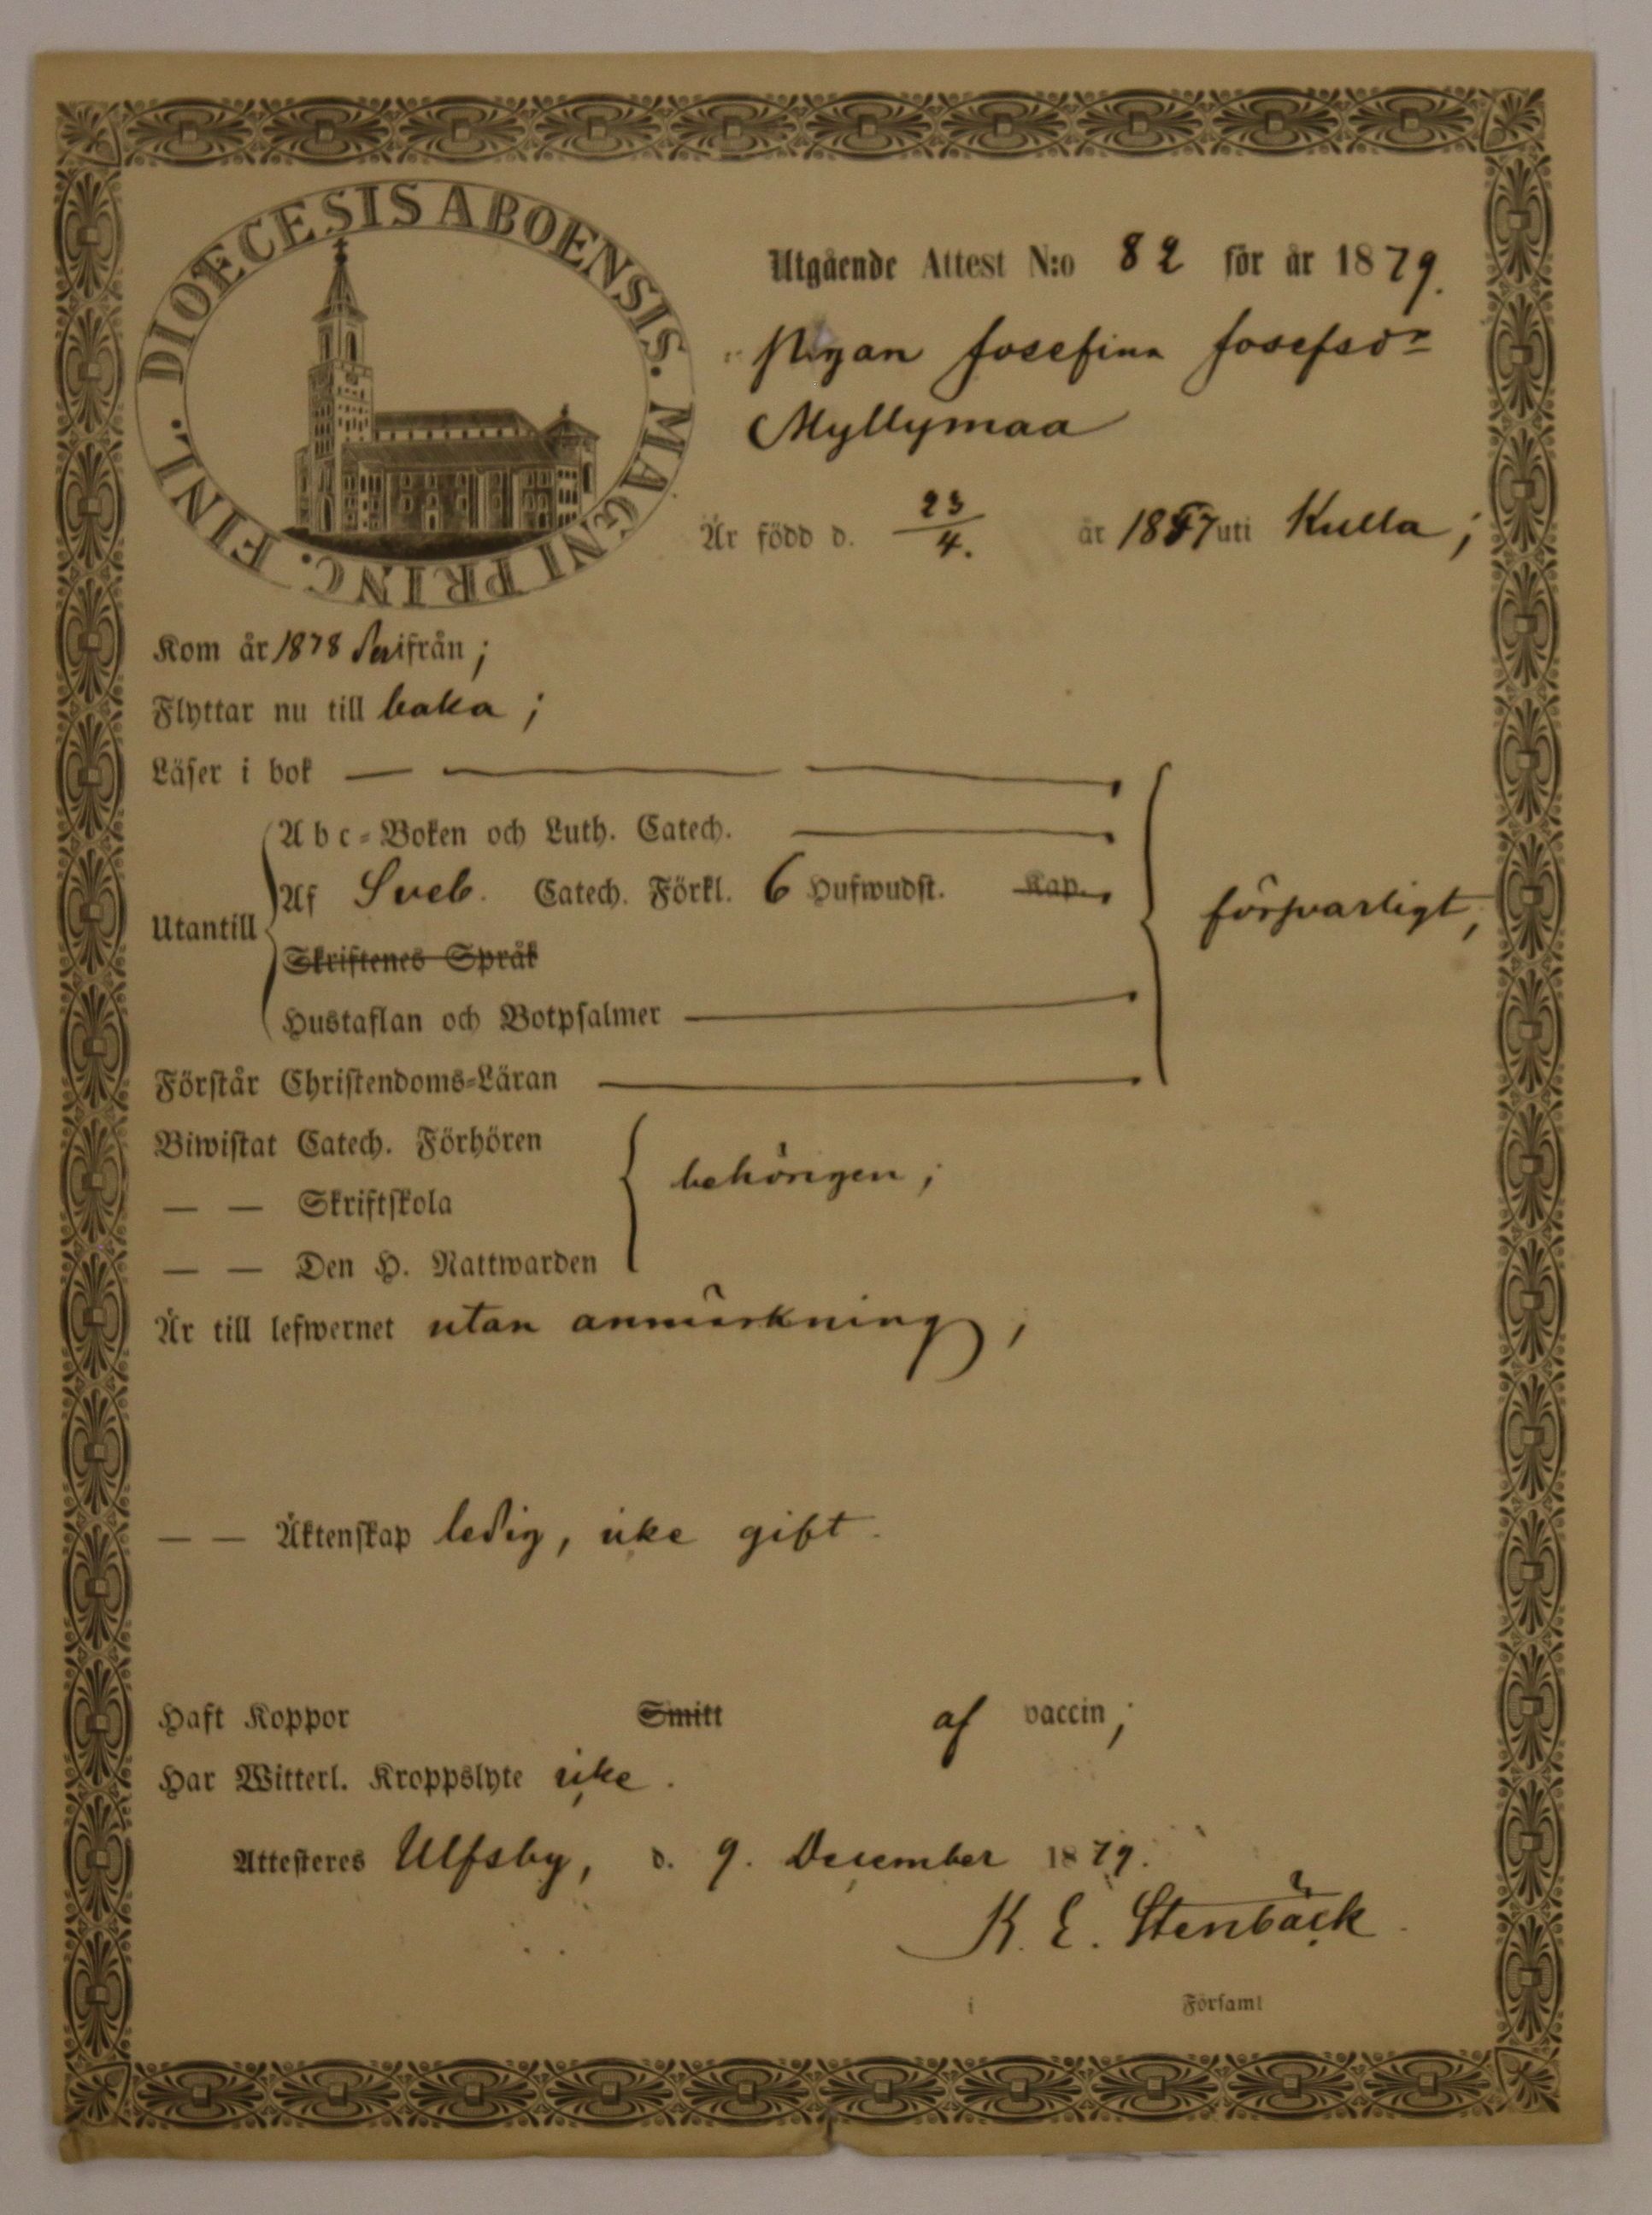 DIOECESIS ABOENSIS. MAGNI PRINC. FINL.
Utgående Attest N:o 82 för år 1879.
Pigan Josefina Josefsdr
Myllymaa
Är född d. 23/4. år 1857 uti Kulla;
Kom år 1878 derifrån;
Flyttar nu till baka;
Läser i bok
Abc-Boken och Luth. Catech.
Af Sveb. Catech. Förkl. 6 Hufwudst. Kap.
försvarligt,
Utantill
Skriftenes Språk
Hustaflan och Botpsalmer
Förstår Christendoms-Läran
Biwistat Catech. Förhören
— — Skriftskola
behörigen;
— — Den H. Nattwarden
Är till lefwernet utan anmärkning,
— — Äktenskap ledig, icke gift.
Haft Koppor Smitt af vaccin;
Har Witterl. Kroppslyte icke.
Attesteres Ulfsby, d. 9. December 1879.
K. E. Stenbäck
i Församl